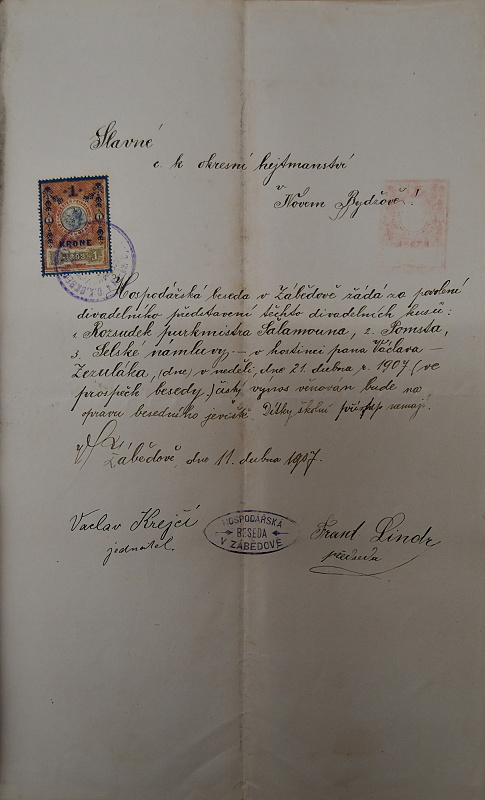 Slavné
c. k. okresní hejtmanství
v
Novém Bydžově!
1
KRONE
Hospodářská beseda v Zábědově žádá za povolení
divadelního představení těchto divadelních kusů:
1. Rozsudek purkmistra Šalamouna, 2. Pomsta,
3. Selské námluvy — v hostinci pana Václava
Zezuláka, (dne) v neděli, dne 21. dubna r. 1907 (ve
prospěch besedy.) čistý výnos věnován bude na
opravu besedního jeviště. Dítky školní nemají.
V Zábědově, dne 11. dubna 1907.
Vaclav Krejčí
jednatel.
HOSPODÁŘSKÁ
BESEDA
V ZÁBĚDOVĚ
Frant Lindr
předseda